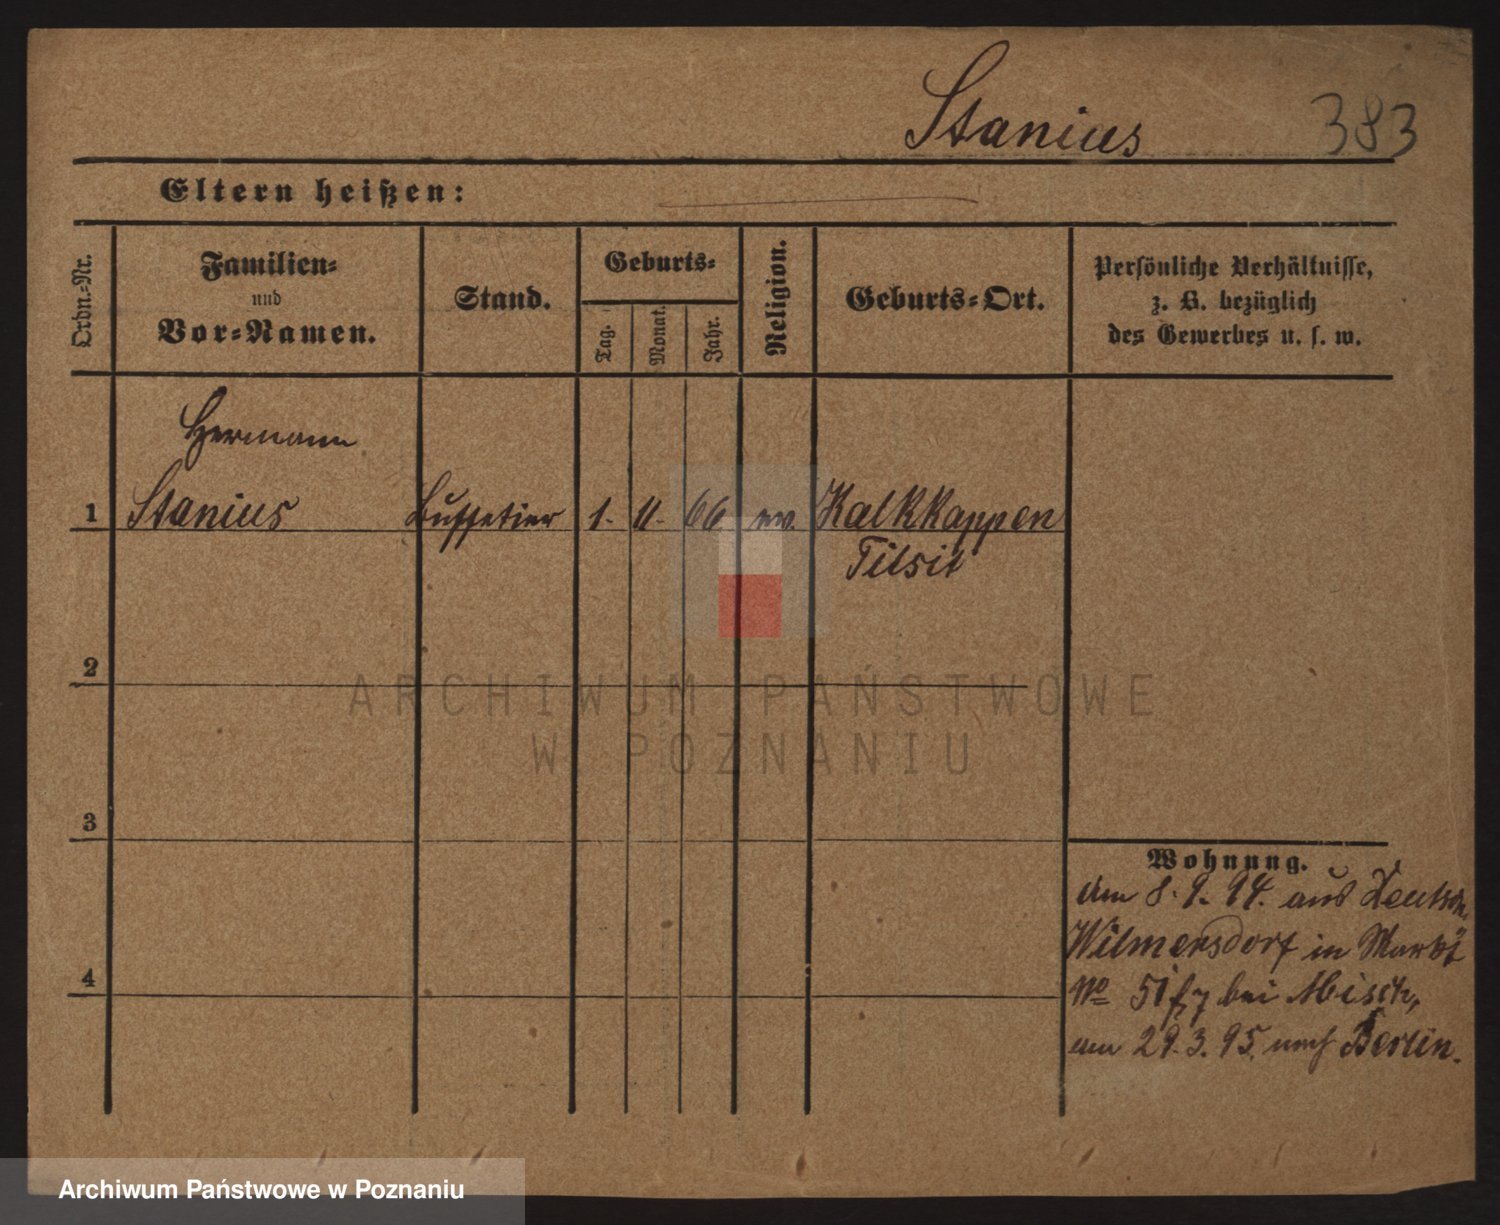 Stanius
383
Eltern heißen:
Ordn.-Nr.
Familien-
und
Vor-Namen.
Stand.
Geburts-
Tag.
Monat.
Jahr.
Religion.
Geburts-Ort.
Persönliche Verhältnisse,
z. B. bezüglich
des Gewerbes u. s. w.
Hermann
1 Stanius Buffetier 1. 11. 66 ev. Kalkkappen
Tilsit
2
3
4
Wohnung.
am 8. 9. 94. aus Deutsch
Wilmersdorf in Markt
No 51 bei Misch,
am 29. 3. 95. nach Berlin.
ARCHIWUM PAŃSTWOWE
W POZNANIU
Archiwum Państwowe w Poznaniu